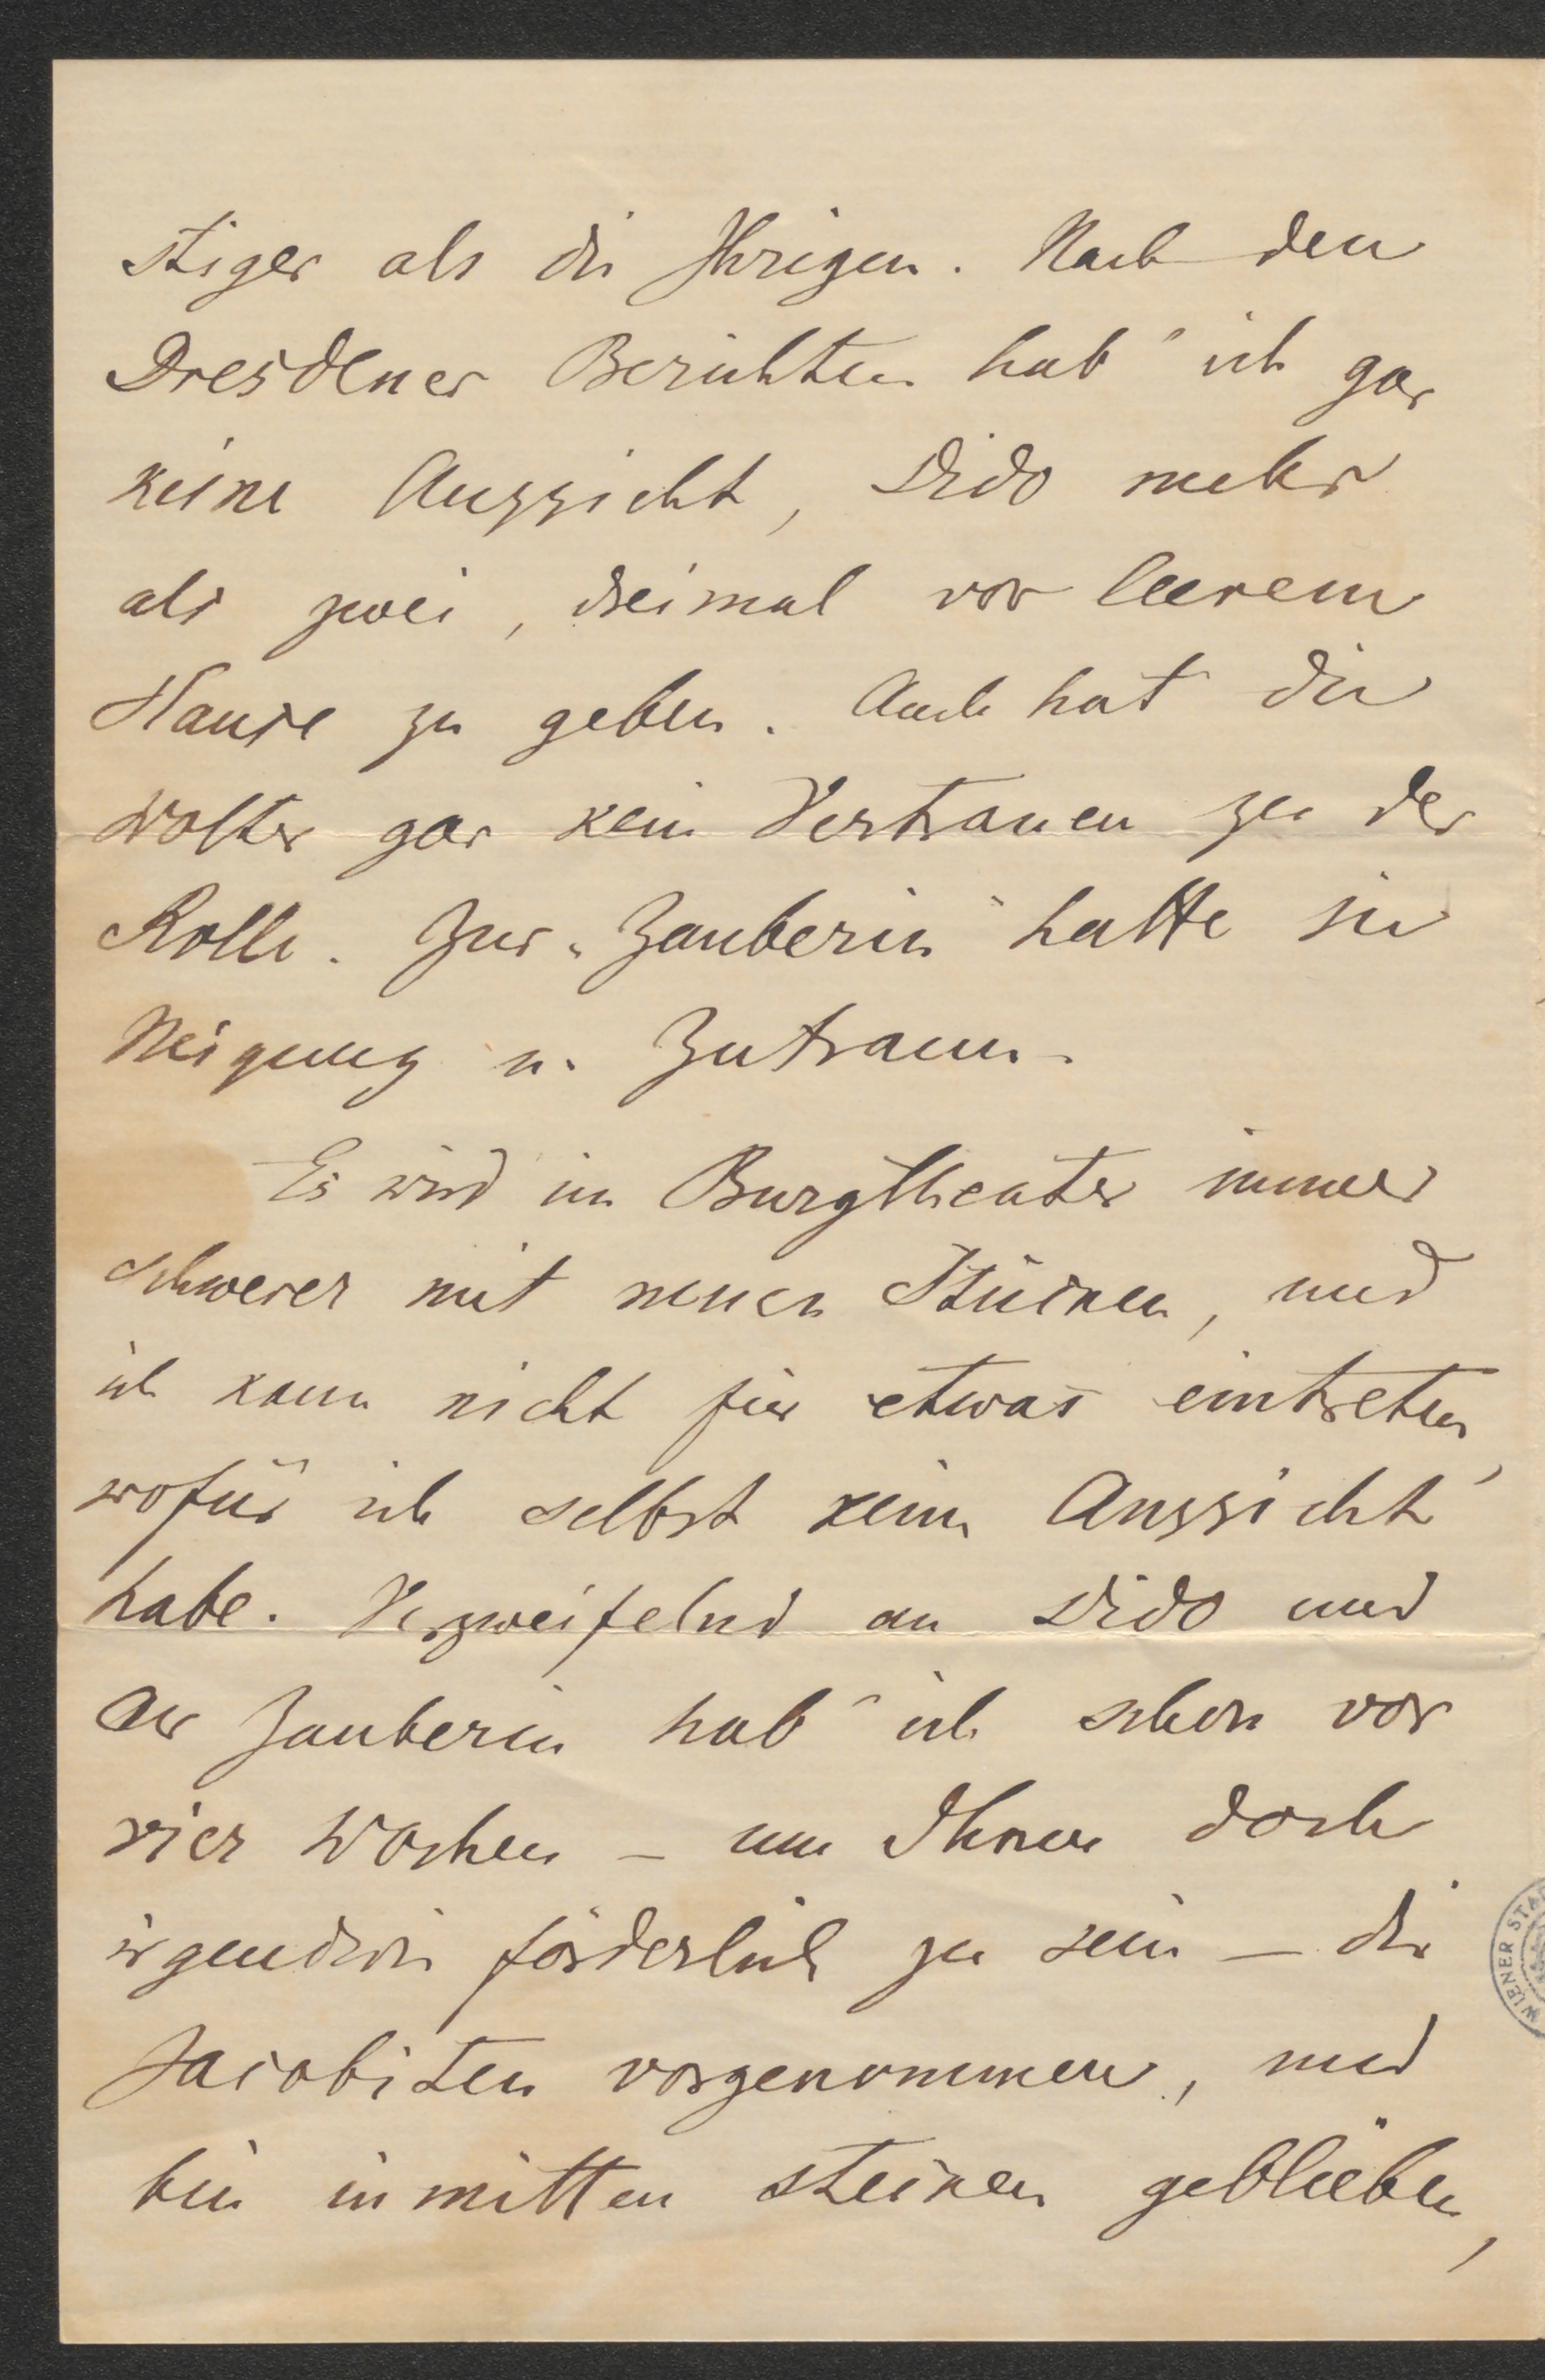 stiger als die Ihrigen. Nach den
Dresdener Berichten hab' ich gar
keine Aussicht, Dido mehr
als zwei, dreimal vor leerem
Hause zu geben. Auch hat die
Wolter gar kein Vertrauen zu der
Rolle. Zur „Zauberin" hatte sie
Neigung u. Zutrauen.
Es wird im Burgtheater immer
schwerer mit neuen Stücken, und
ich kann nicht für etwas eintreten,
wofür ich selbst keine Aussicht
habe. Verzweifelnd an Dido und
der Zauberin hab' ich schon vor
vier Wochen – um Ihnen doch
irgendwie förderlich zu sein – die
Jacobiten vorgenommen, und
bin inmitten stecken geblieben,
WIENER STA